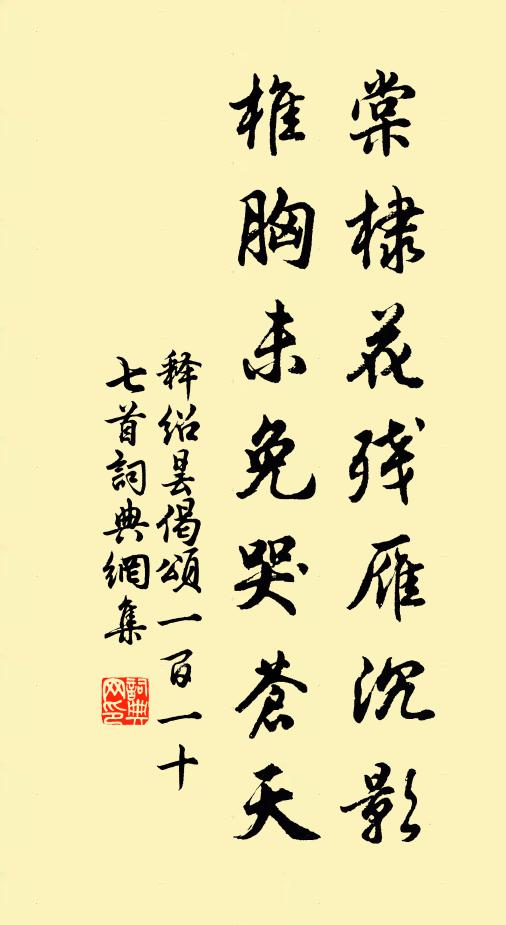 棠棣花残雁沉影
椎胸未免哭蒼天
释绍昙偈頌一百一十
七首詞典網集
詞典
网印